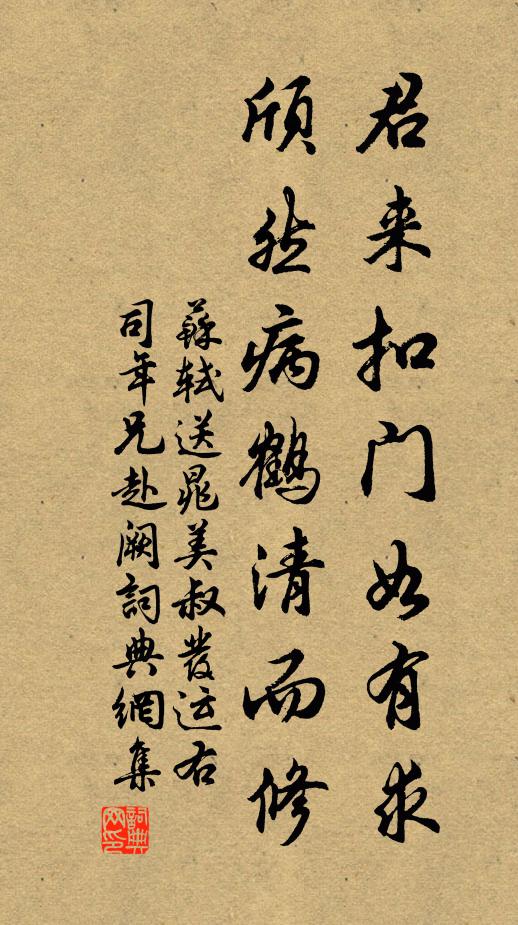 君来扣门如有求
頎然病鶴清而修
蘇軾送晁美叔發运右
司年兄赴阙詞典網集
詞典网印